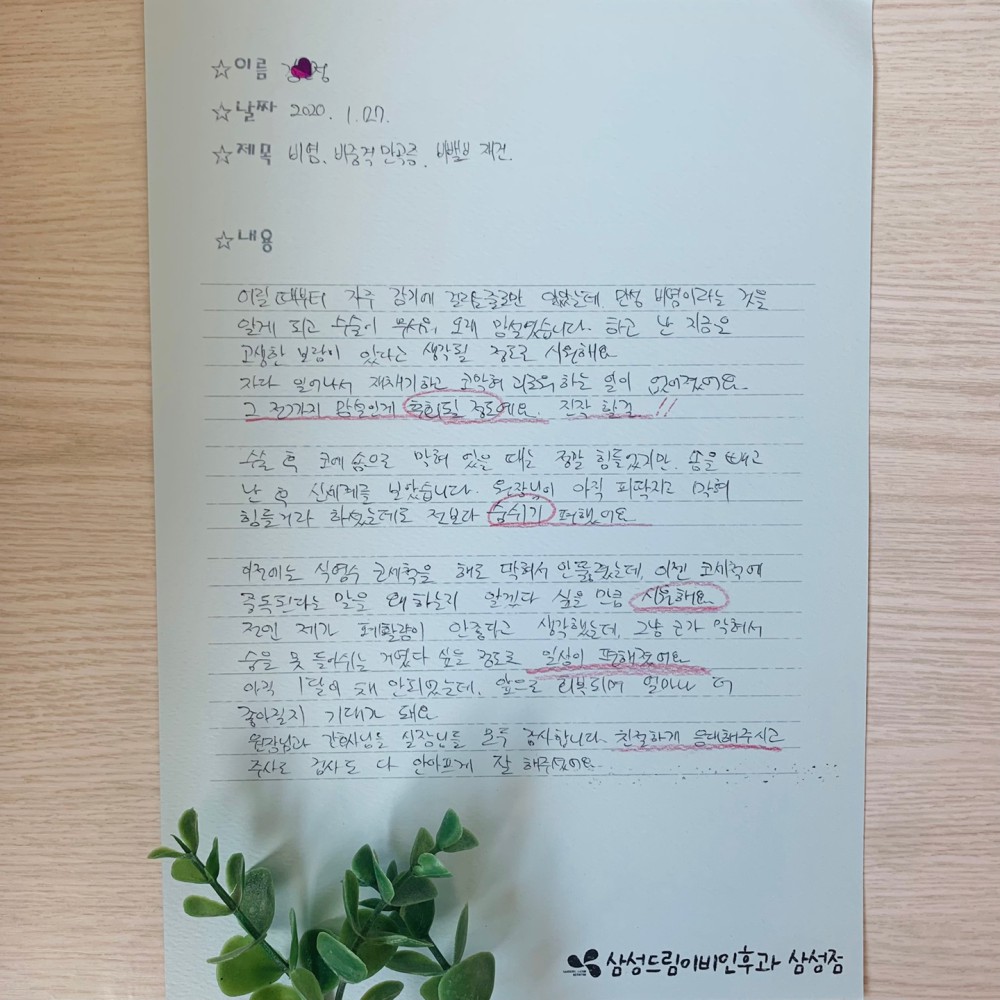 ☆이름 김 정
☆날짜 2020. 1. 27.
☆제목 비염, 비중격 만곡증, 비밸브 재건.
☆내용
어릴 때부터 자주 감기에 걸리는줄로만 알았는데 만성 비염이라는 것을
알게 되고 수술이 무서워, 오래 망설였습니다. 하고 난 지금은
고생한 보람이 있다고 생각될 정도로 시원해요
자다 일어나서 재채기하고 코막혀 괴로워 하는 일이 없어졌어요
그 전까지 망설인게 후회될 정도예요. 진작 할걸 !!
수술 후 코에 솜으로 막혀 있을 때는 정말 힘들었지만, 솜을 빼고
난 후 신세계를 보았습니다. 원장님이 아직 피딱지로 막혀
힘들거라 하셨는데도 전보다 숨쉬기 편했어요
이전에는 식염수 코세척을 해도 막혀서 안뚫렸는데, 이젠 코세척에
중독된다는 말을 왜 하는지 알겠다 싶을 만큼 시원해요
전엔 제가 폐활량이 안좋다고 생각했는데, 그냥 코가 막혀서
숨을 못 들어쉬는 거였다 싶을 정도로 일상이 편해졌어요
아직 1달이 채 안되었는데, 앞으로 회복되며 얼마나 더
좋아질지 기대가 돼요
원장님과 간호사님들 실장님들 모두 감사합니다. 친절하게 응대해주시고
주사도 검사도 다 안아프게 잘 해주셨어요
삼성드림이비인후과 삼성점